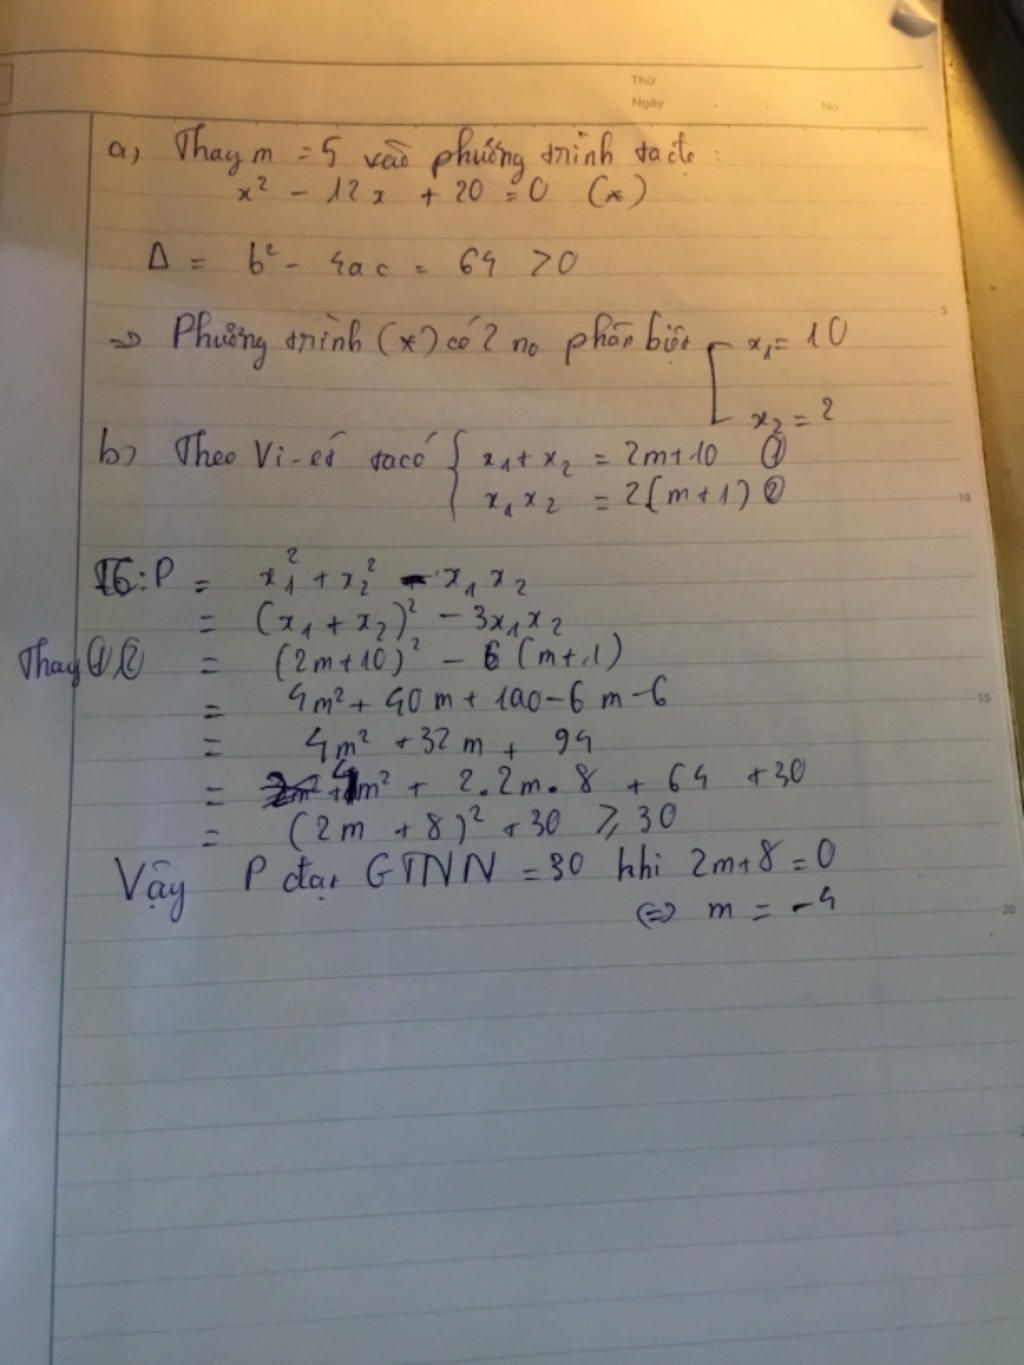 Thứ
Ngày
No.
a) Thay m = 5 vào phương trình ta đc :
x² - 12x + 20 = 0 (*)
Δ = b² - 4ac = 64 > 0
5
=> Phương trình (*) có 2 no phân biệt [ x₁ = 10
x₂ = 2
b) Theo Vi-ét ta có { x₁ + x₂ = 2m+10 ①
x₁x₂ = 2(m+1) ②
10
P = x₁² + x₂² - x₁x₂
= (x₁ + x₂)² - 3x₁x₂
Thay ① ② = (2m+10)² - 6(m+1)
= 4m² + 40m + 100 - 6m - 6
15
= 4m² + 32m + 94
= 4m² + 2.2m.8 + 64 + 30
= (2m + 8)² + 30 ≥ 30
Vậy P đạt GTNN = 30 khi 2m+8 = 0
<=> m = -4
20